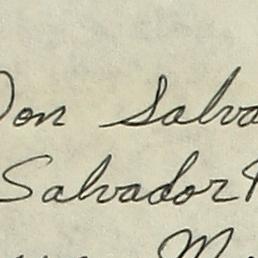 Don Salva
Salvador